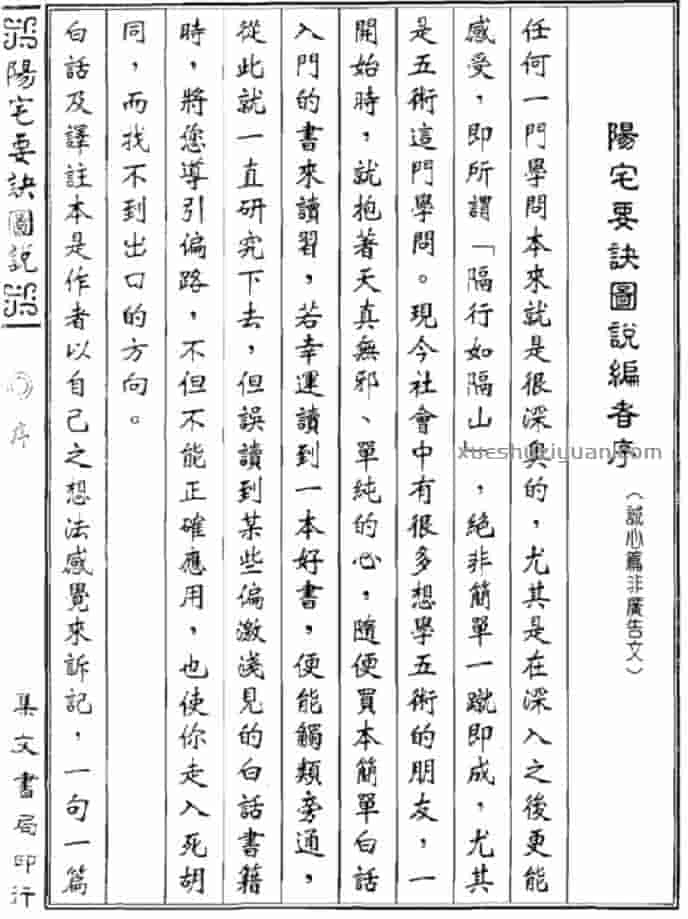 陽宅要訣圖說編者序（誠心篇非廣告文）
任何一門學問本來就是很深奧的，尤其是在深入之後更能
感受，即所謂「隔行如隔山」，絕非簡單一蹴即成，尤其
是五術這門學問。現今社會中有很多想學五術的朋友，一
開始時，就抱著天真無邪、單純的心，隨便買本簡單白話
入門的書來讀習，若幸運讀到一本好書，便能觸類旁通，
從此就一直研究下去，但誤讀到某些偏激淺見的白話書籍
時，將您導引偏路，不但不能正確應用，也使你走入死胡
同，而找不到出口的方向。
白話及譯註本是作者以自己之想法感覺來訴記，一句一篇
陽宅要訣圖說
序
集文書局印行
xueshukiyuan.com